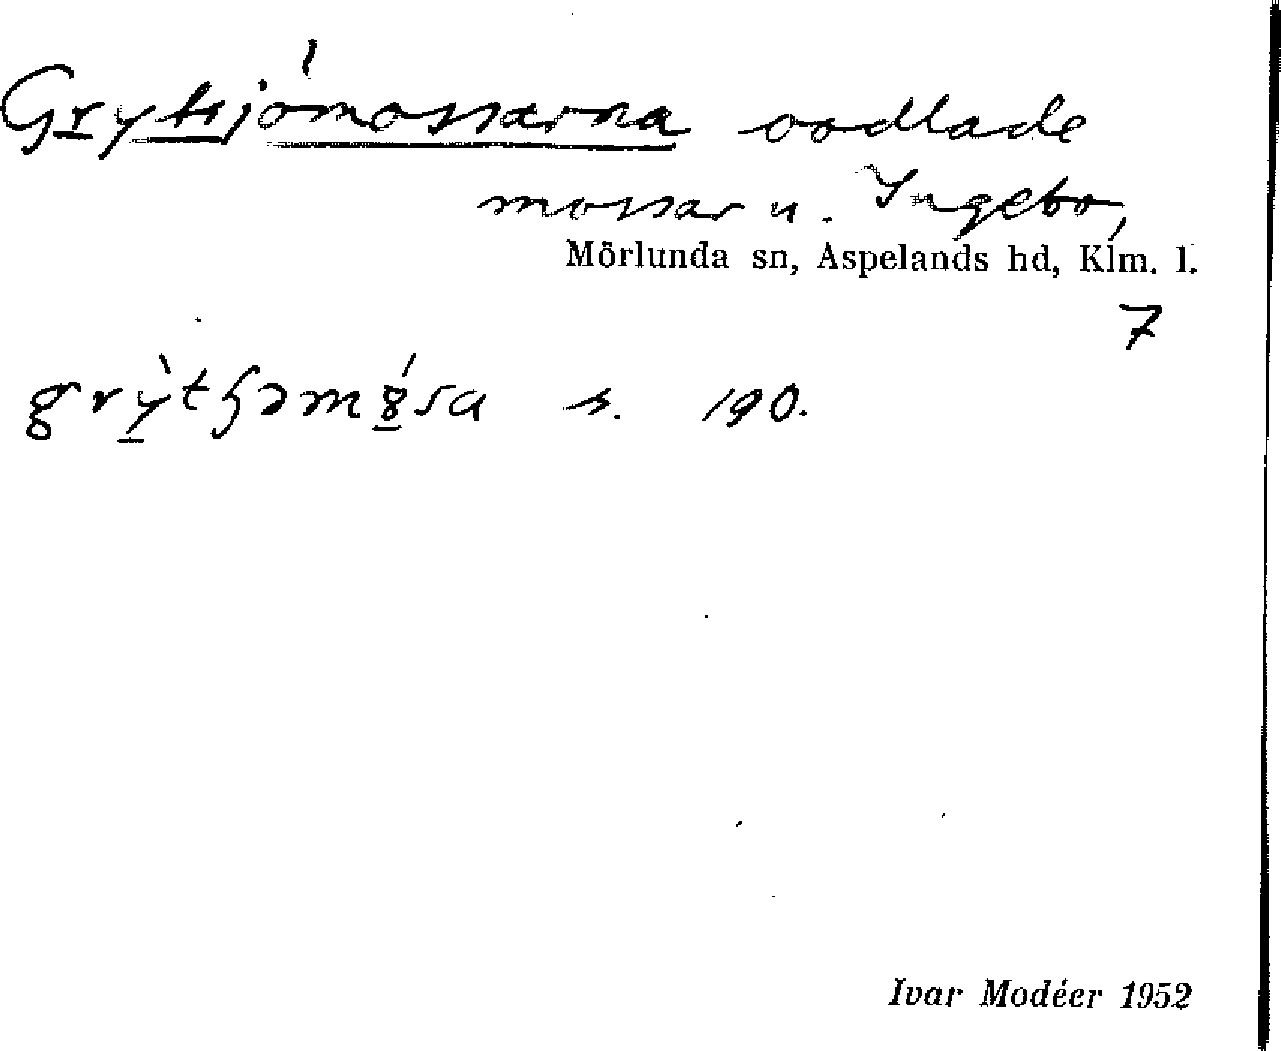 Grytsjömossarna oodlade
mossar u. Ingebo,
Mörlunda sn, Aspelands hd, Klm. l.
7
s. 190.
Ivar Modéer 1952